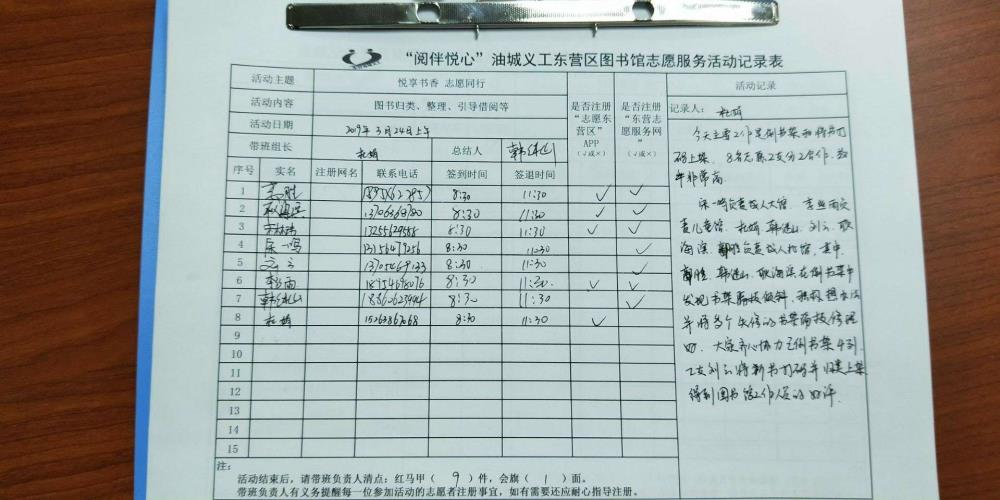 “阅伴悦心”油城义工东营区图书馆志愿服务活动记录表
活动主题 悦享书香 志愿同行 是否注册“志愿东营区”APP（√或×） 是否注册“东营志愿服务网”（√或×） 活动记录
活动内容 图书归类、整理、引导借阅等
活动日期 2019年3月24日上午
带班组长 杜娟 总结人 韩继山
序号 实名 注册网名 联系电话 签到时间 签退时间
1 8:30 11:30 √ √
2 8:30 11:30 √ √
3 13255629588 8:30 11:30 √ √
4 13156479056 8:30 11:30 √
5 刘云 13705469133 8:30 11:30 √
6 李雨 18954698076 8:30 11:30 √ √
7 韩继山 18860623444 8:30 11:30 √
8 杜娟 8:30 11:30 √
9
10
11
12
13
14
15
记录人： 杜娟
今天主要工作是倒书架和将书打
码上架。8名志愿者分工合作，效
率非常高。
负责成人大馆。
儿童馆。杜娟 韩继山 刘云
海滨 负责成人 馆。其中
韩继山、 海滨在倒书架中
发现书架 板倾斜，积极想办法
并将多个失修的书架 板修理
好。大家齐心协力 倒书架4列。
刘云将新书打码并归类上架
得到图书馆工作人员的好评。
注：
活动结束后，请带班负责人清点：红马甲（ 9 ）件，会旗（ 1 ）面。
带班负责人有义务提醒每一位参加活动的志愿者注册事宜，如有需要还应耐心指导注册。